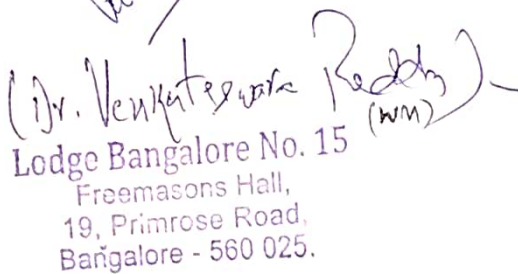 (Dr. Venkateswara Reddy)
(WM)
Lodge Bangalore No. 15
Freemasons Hall,
19, Primrose Road,
Bangalore - 560 025.